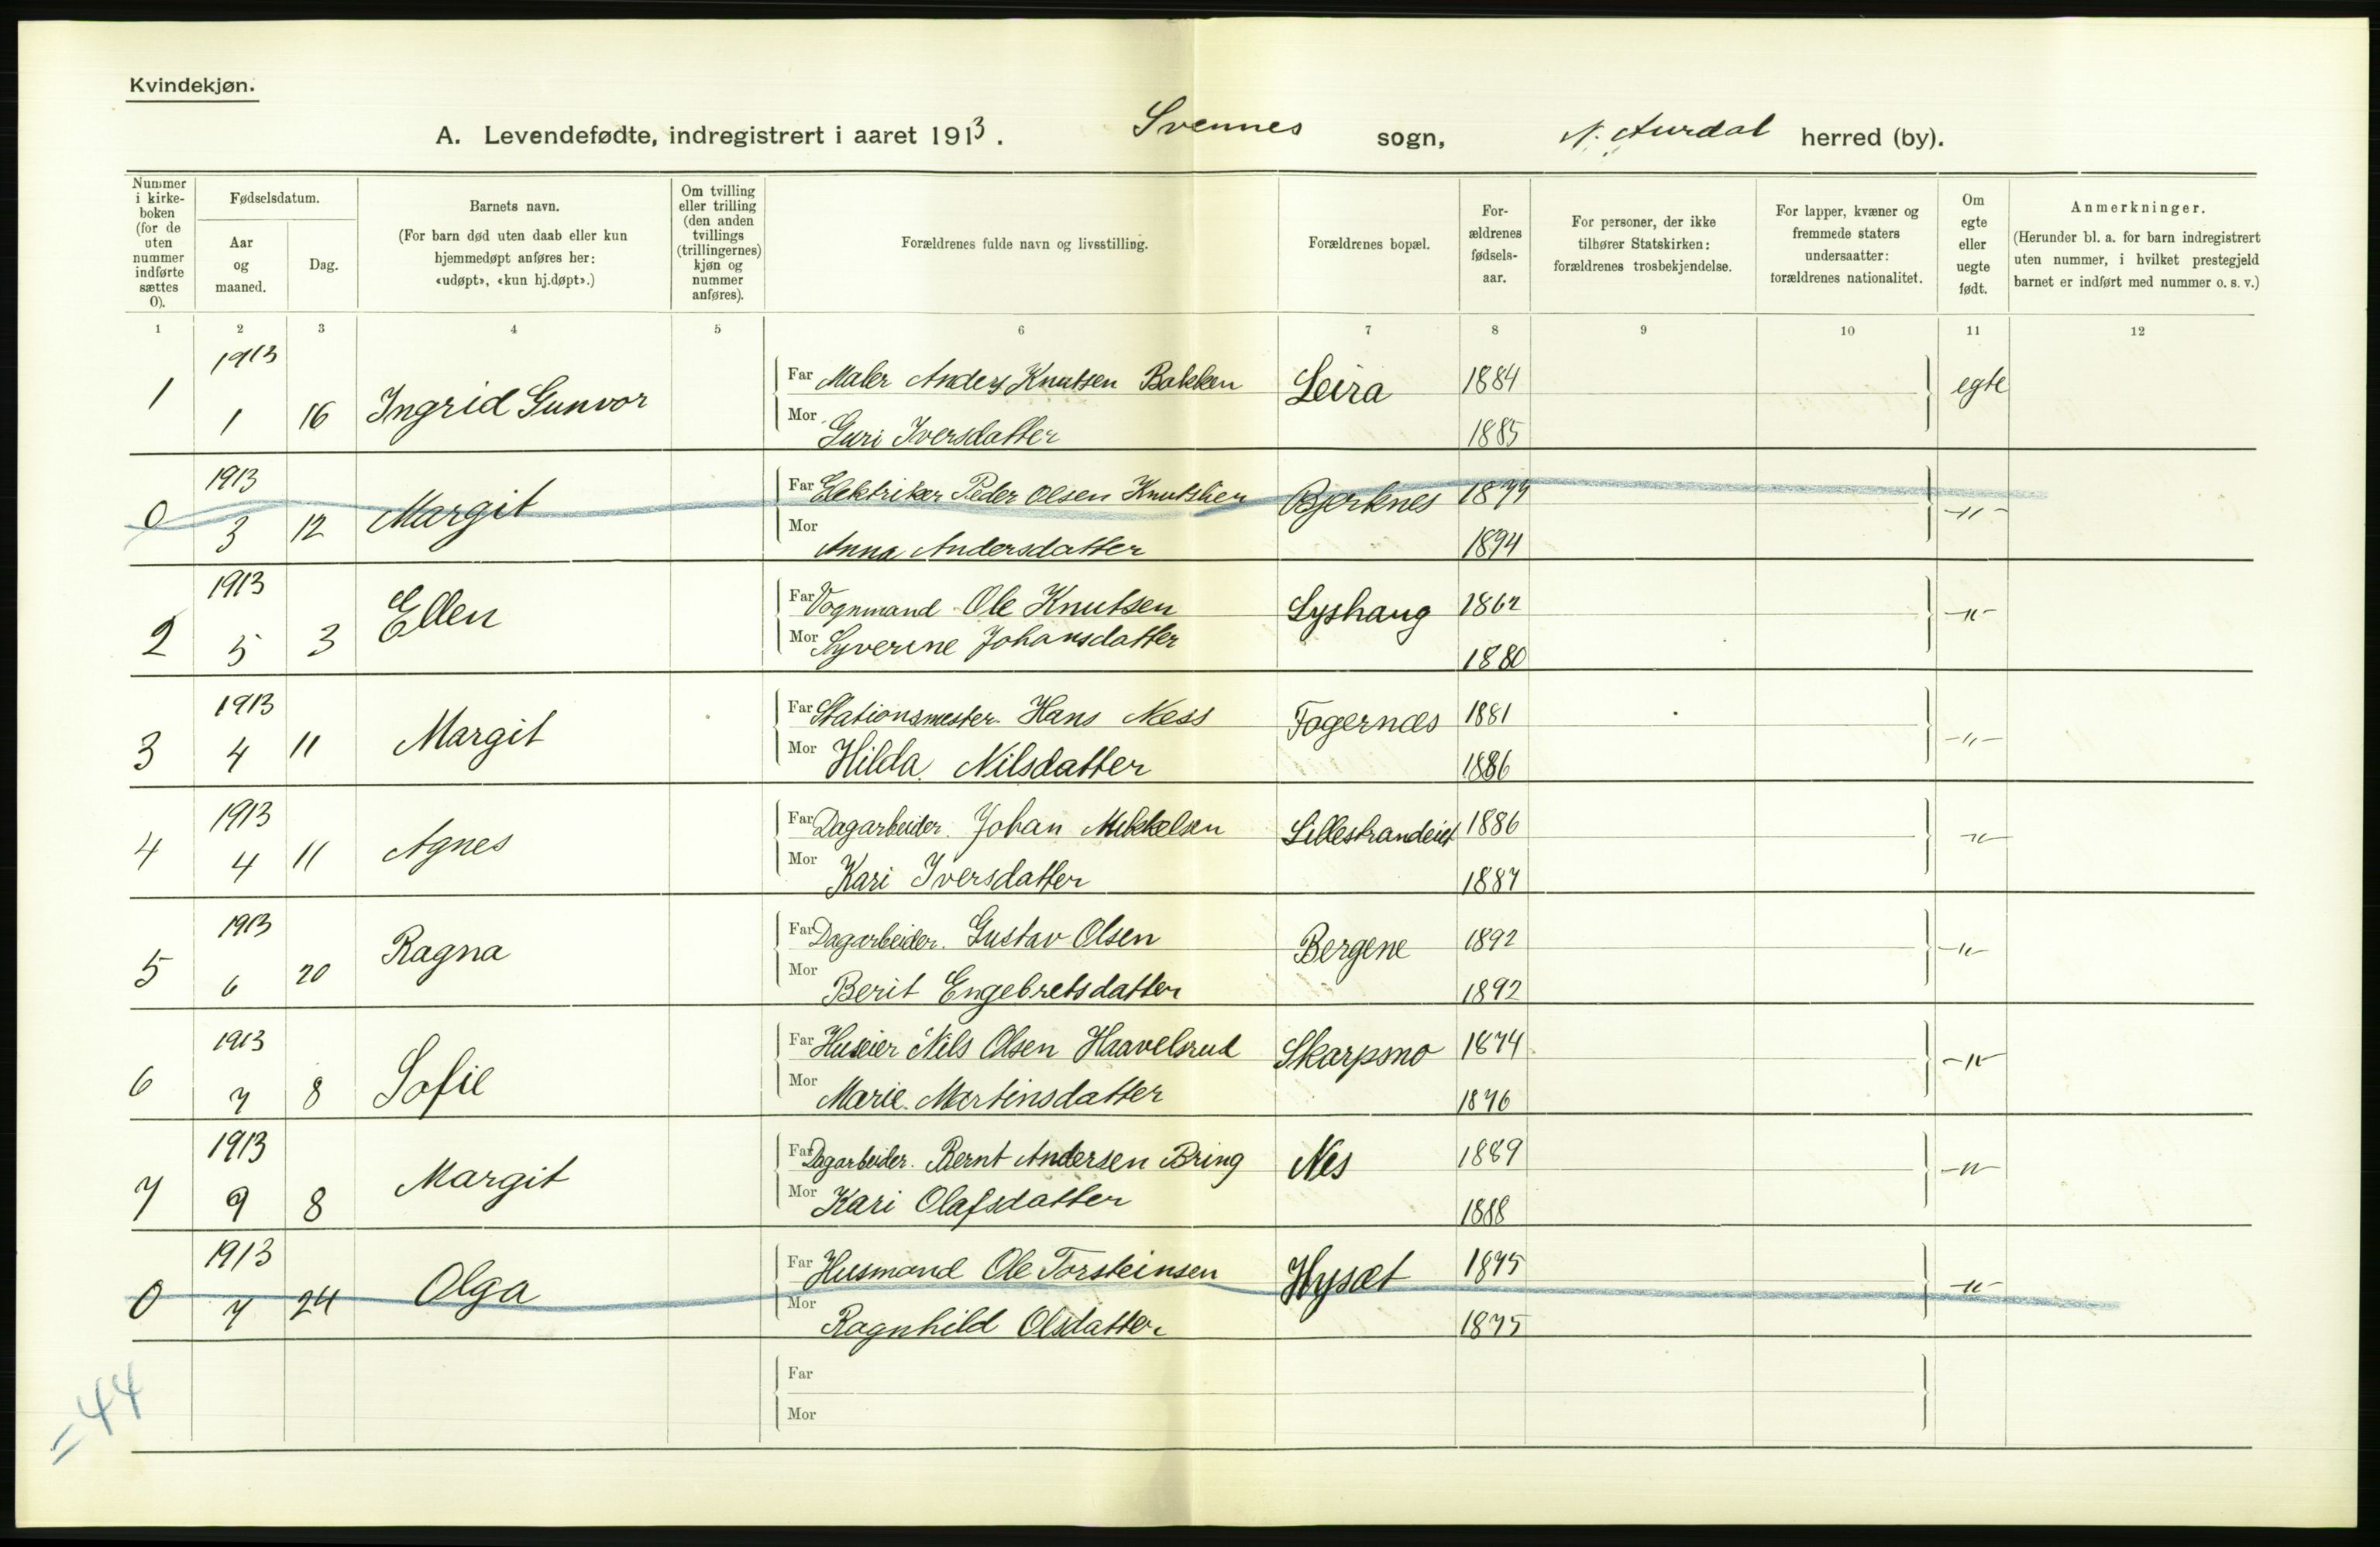 Kvindekjøn.
A. Levendefødte, indregistrert i aaret 1913. Svennes sogn, N. Aurdal herred (by).
Nummer i kirkeboken (for de uten nummer indførte sættes 0).
Fødselsdatum.
Aar og maaned.
Dag.
Barnets navn.
(For barn død uten daab eller kun hjemmedøpt anføres her: «udøpt», «kun hj.døpt».)
Om tvilling eller trilling (den anden tvillings (trillingernes) kjøn og nummer anføres).
Forældrenes fulde navn og livsstilling.
Forældrenes bopæl.
Forældrenes fødselsaar.
For personer, der ikke tilhører Statskirken: forældrenes trosbekjendelse.
For lapper, kvæner og fremmede staters undersaatter: forældrenes nationalitet.
Om egte eller uegte født.
Anmerkninger.
(Herunder bl. a. for barn indregistrert uten nummer, i hvilket prestegjeld barnet er indført med nummer o. s. v.)
1 2 3 4 5 6 7 8 9 10 11 12
1 1913 1 16 Ingrid Gunvor Far Maler Anders Knutsen Bakken Leira 1884 egte
Mor Guri Iversdatter 1885
0 1913 3 12 Margit Far Elektriker Peder Olsen Knutslien Bjerknes 1879 -"-
Mor Anna Andersdatter 1894
2 1913 5 3 Ellen Far Vognmand Ole Knutsen Lyshaug 1862 -"-
Mor Syverine Johansdatter 1880
3 1913 4 11 Margit Far Stationsmester Hans Ness Fagernæs 1881 -"-
Mor Hilda Nilsdatter 1886
4 1913 4 11 Agnes Far Dagarbeider. Johan Mikkelsen Lillestrandeiet 1886 -"-
Mor Kari Iversdatter 1887
5 1913 6 20 Ragna Far Dagarbeider. Gustav Olsen Bergene 1892 -"-
Mor Berit Engebretsdatter 1892
6 1913 7 8 Sofie Far Huseier Nils Olsen Haavelsrud Skarpsno 1874 -"-
Mor Marie Martinsdatter 1876
7 1913 9 8 Margit Far Dagarbeider. Bernt Andersen Bring Nes 1889 -"-
Mor Kari Olafsdatter 1888
0 1913 7 24 Olga Far Husmand Ole Torsteinsen Hysæt 1875 -"-
Mor Ragnhild Olsdatter 1875
Far
Mor
=44